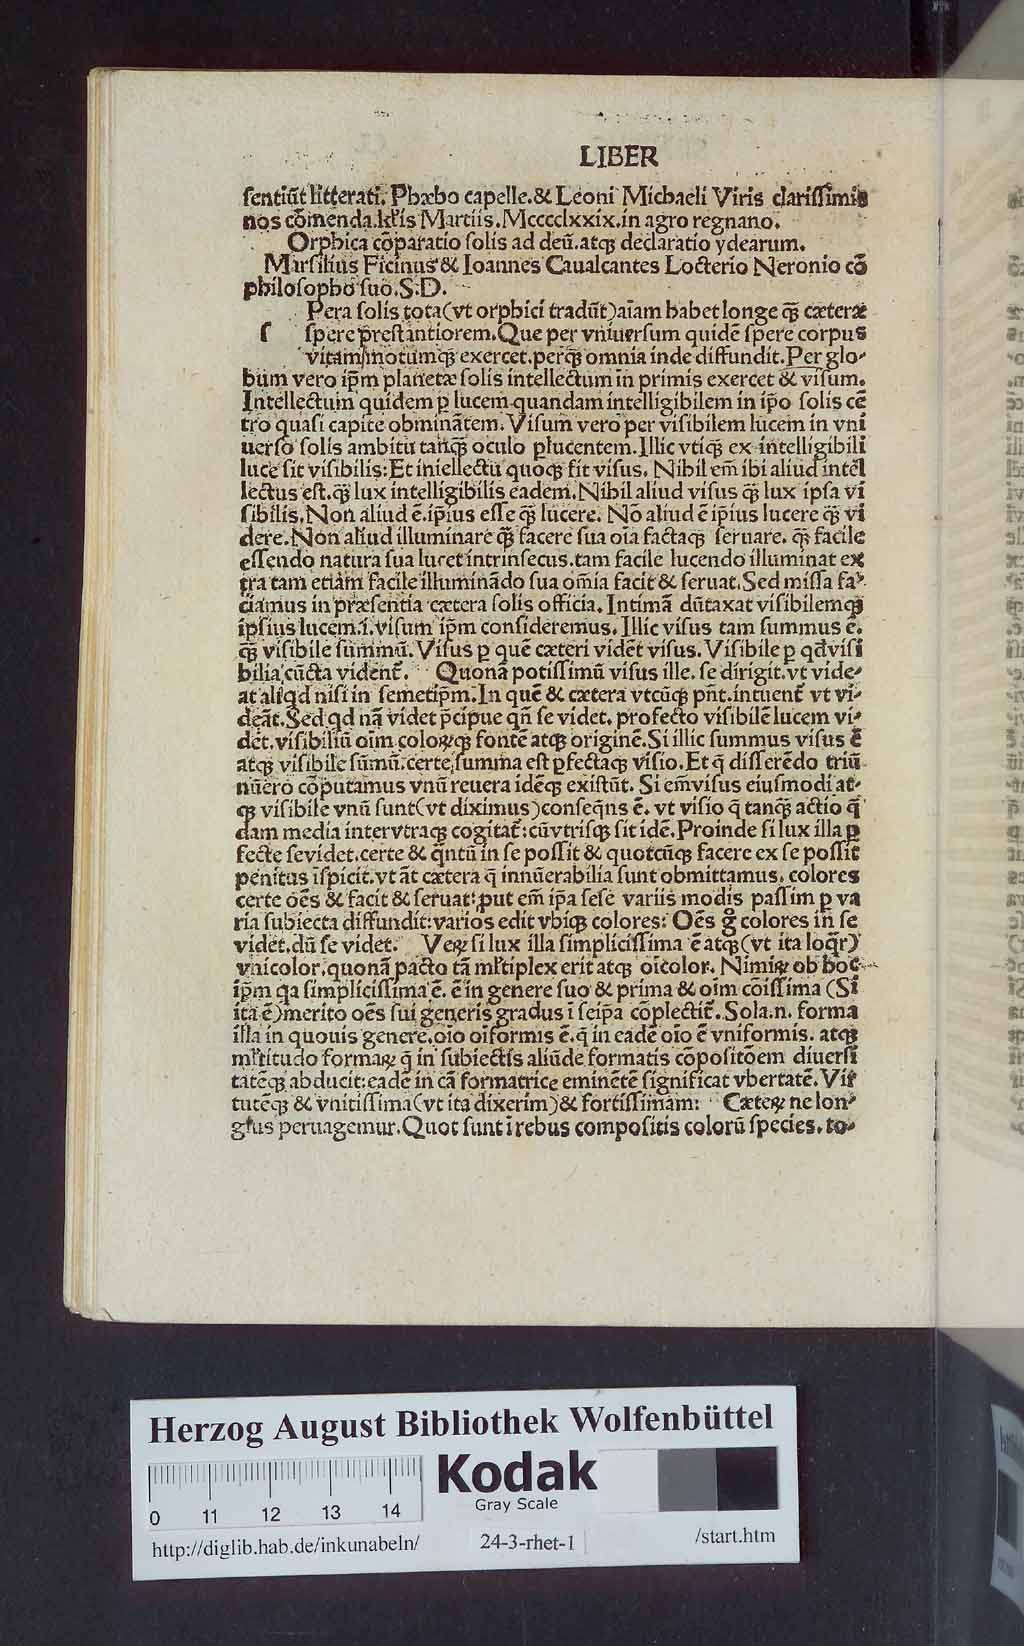 LIBER
sentiūt litterati. Phæbo capelle.& Leoni Michaeli Viris clarissimis
nos cōmenda.kl̄is Martiis. Mcccclxxix.in agro regnano.
Orphica cōparatio solis ad deū.atqꝫ declaratio ydearum.
Marsilius Ficinus & Ioannes Caualcantes Locterio Neronio cō
philosopho suo.S.D.
Pera solis tota(vt orphici tradūt)aīam habet longe qꝫ̄ cæteræ
ſ spere prestantiorem.Que per vniuersum quidē spere corpus
vitam motumqꝫ exercet.perqꝫ omnia inde diffundit.Per glo-
bum vero ip̄m planetæ solis intellectum in primis exercet & visum.
Intellectum quidem ꝑ lucem quandam intelligibilem in ip̄o solis cē
tro quasi capite obminātem. Visum vero per visibilem lucem in vni
uerso solis ambitu tanqꝫ̄ oculo ꝑlucentem.Illic vtiqꝫ ex intelligibili
luce fit visibilis:Et intellectu quoqꝫ fit visus. Nihil em̄ ibi aliud intēl
lectus est.qꝫ̄ lux intelligibilis eadem.Nihil aliud visus qꝫ̄ lux ipsa vi
sibilis.Non aliud ē.ip̄ius esse qꝫ̄ lucere. Nō aliud ē ip̄ius lucere qꝫ̄ vi
dere.Non aliud illuminare qꝫ̄ facere sua oīa factaqꝫ seruare. qꝫ̄ facile
essendo natura sua lucet intrinsecus.tam facile lucendo illuminat ex
tra tam etiam facile illuminādo sua om̄ia facit & seruat.Sed missa fa-
ciamus in præsentia cætera solis officia. Intimā dūtaxat visibilemqꝫ
ipsius lucem.i.visum ip̄m consideremus. Illic visus tam summus ē.
qꝫ̄ visibile summū. Visus ꝑ quē cæteri vidēt visus. Visibile ꝑ qd̄ visi
bilia cūcta vident̄. Quonā potissimū visus ille. se dirigit.vt vide-
at aliqd nisi in semetip̄m.In quē & cætera vtcūqꝫ pn̄t.intuent̄ vt vi-
deāt.Sed qd nā videt p̄cipue qn̄ se videt. profecto visibilē lucem vi-
det.visibiliū oīm coloꝝqꝫ fontē atqꝫ originē.Si illic summus visus ē
atqꝫ visibile sūmū.certe summa est ꝑfectaqꝫ visio.Et q̄ disserēdo triū
nūero cōputamus vnū reuera idēqꝫ existūt. Si em̄ visus eiusmodi at-
qꝫ visibile vnū sunt(vt diximus)conseq̄ns ē. vt visio q̄ tanqꝫ̄ actio q̄
dam media intervtraqꝫ cogitat̄:cū vtrisqꝫ sit idē.Proinde si lux illa ꝑ
fecte se videt.certe & q̄ntū in se possit & quotcūqꝫ facere ex se possit
penitus īspicit.vt āt cætera q̄ innūerabilia sunt obmittamus. colores
certe oēs & facit & seruat:put em̄ ip̄a sese variis modis passim ꝑ va
ria subiecta diffundit:varios edit vbiqꝫ colores: Oēs g̊ colores in se
videt.dū se videt. Veꝝ si lux illa simplicissima ē atqꝫ(vt ita loq̄r)
vnicolor.quonā pacto tā ml̄tiplex erit atqꝫ oīcolor. Nimiꝝ ob hoc
ip̄m qa simplicissima ē. ē in genere suo & prima & oīm cōissima (Si
ita ē)merito oēs sui generis gradus ī seip̄a cōplectit̄. Sola.n. forma
illa in quouis genere.oīo oīformis ē.q̄ in eadē oīo ē vniformis. atqꝫ
ml̄titudo formaꝝ q̄ in subiectis aliūde formatis cōpositōem diuersi
tatēqꝫ abducit:eadē in cā formatrice eminētē significat vbertatē. Vir
tutēqꝫ & vnitissima(vt ita dixerim)& fortissimam: Cæteꝝ ne lon-
gius peruagemur.Quot sunt ī rebus compositis colorū species. to-
Herzog August Bibliothek Wolfenbüttel
0 11 12 13 14
Kodak
Gray Scale
http://diglib.hab.de/inkunabeln/ 24-3-rhet-1 /start.htm